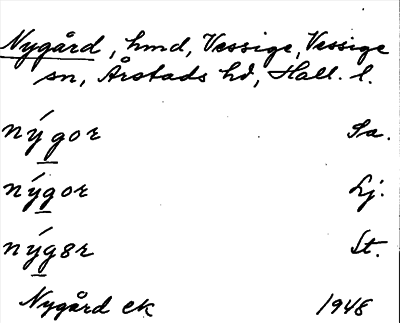 Nygård, hmd, Vessige, Vessige
sn, Årstads hd, Hall. l.
nýgor Sa.
nýgor Lj.
nýg8r St.
Nygård ek 1948